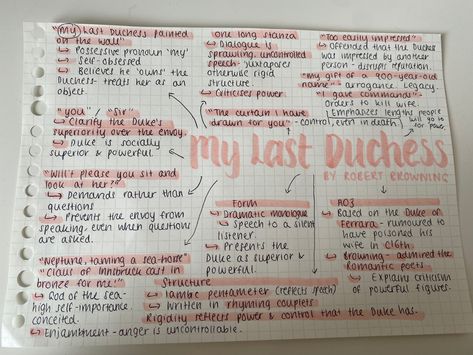 "(my) Last Duchess painted
on the wall"
↳ Possessive pronoun 'my'
↳ Self-obsessed
↳ Believes he 'owns' the
Duchess- treats her as an
object.
one long stanza
↳ Dialogue is
sprawling, uncontrolled
speech- juxtaposes
otherwise rigid
structure.
↳ Criticises power
"Too easily impressed"
↳ Offended that the Duchess
was impressed by another
person - disrupts reputation.
"My gift of a 900-year-old
name" - arrogance. Legacy.
"I gave commands"-
Orders to kill wife.
Emphasizes lengths people
will go to
for power.
"you" / "Sir"
↳ Clarify the Duke's
superiority over the envoy.
↳ Duke is socially
superior & powerful.
"The curtain I have
drawn for you" -control, even in death
My Last Duchess
BY ROBERT BROWNING
"Will't please you sit and
look at her?"
↳ Demands rather than
questions
↳ Prevents the envoy from
speaking, even when questions
are asked.
Form
↳ Dramatic monologue
↳ Speech to a silent
listener.
↳ Presents the
Duke as superior &
powerful.
AO3
↳ Based on the Duke of
Ferrara - rumoured to
have poisoned his
wife in C16th.
↳ Browning - admired the
Romantic poets.
↳ Explains criticism
of powerful figures.
"Neptune, taming a sea-horse"
"Claus of Innsbruck cast in
bronze for me!"
↳ God of the sea-
high self-importance.
conceited.
↳ Enjambment - anger is uncontrollable.
Structure
↳ Iambic pentameter (reflects speech)
↳ Written in rhyming couplets
Rigidity reflects power & control that the Duke has.